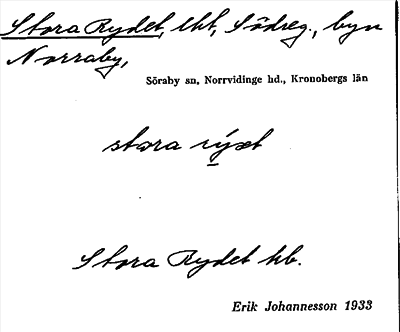 Stora Rydet, tkt, Södreg., byn
Norraby,
Söraby sn, Norrvidinge hd., Kronobergs län
stora
Stora Rydet tkt.
Erik Johannesson 1933